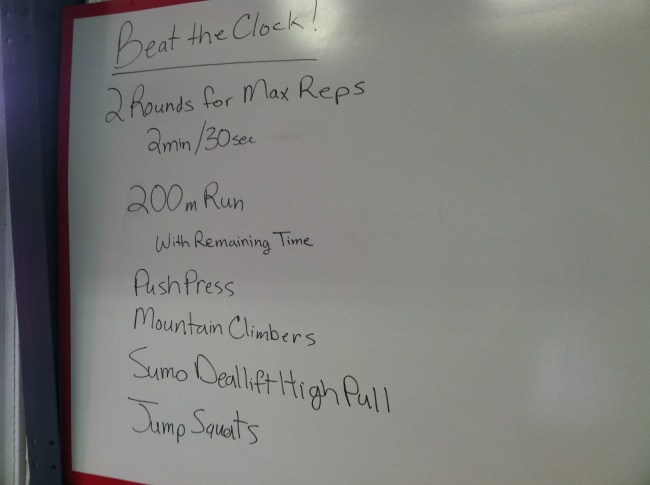 Beat the Clock!
2 Rounds for Max Reps
2min/30sec
200m Run
With Remaining Time
Push Press
Mountain Climbers
Sumo Deallift High Pull
Jump Squats